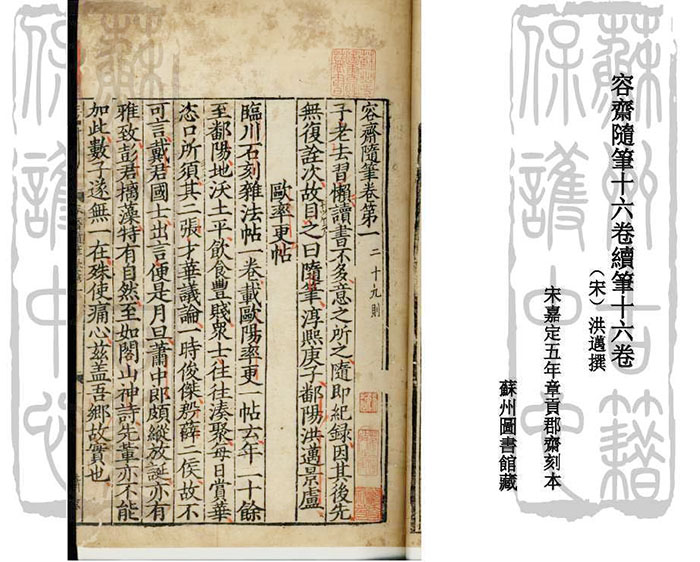 蘇州古籍
保護中心
容齋隨筆十六卷續筆十六卷
（宋）洪邁撰
宋嘉定五年章貢郡齋刻本
蘇州圖書館藏
容齋隨筆卷第一 二十九則
予老去習懶讀書不多意之所之隨即紀録因其後先
無復詮次故目之曰隨筆淳熙庚子鄱陽洪邁景盧
歐率更帖
臨川石刻雜法帖一卷載歐陽率更一帖云年二十餘
至鄱陽地沃土平飲食豐賤衆士往往湊聚每日賞華
恣口所須其二張才華議論一時俊傑殷薛二侯故不
可言戴君國士出言便是月旦蕭中郎頗縱放誕亦有
雅致彭君摛藻特有自然至如閣山神詩先輩亦不能
加此數子遂無一在殊使痛心兹盖吾鄉故實也